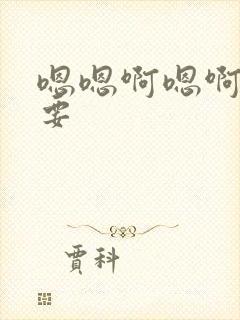 嗯嗯啊嗯啊
要
賈科